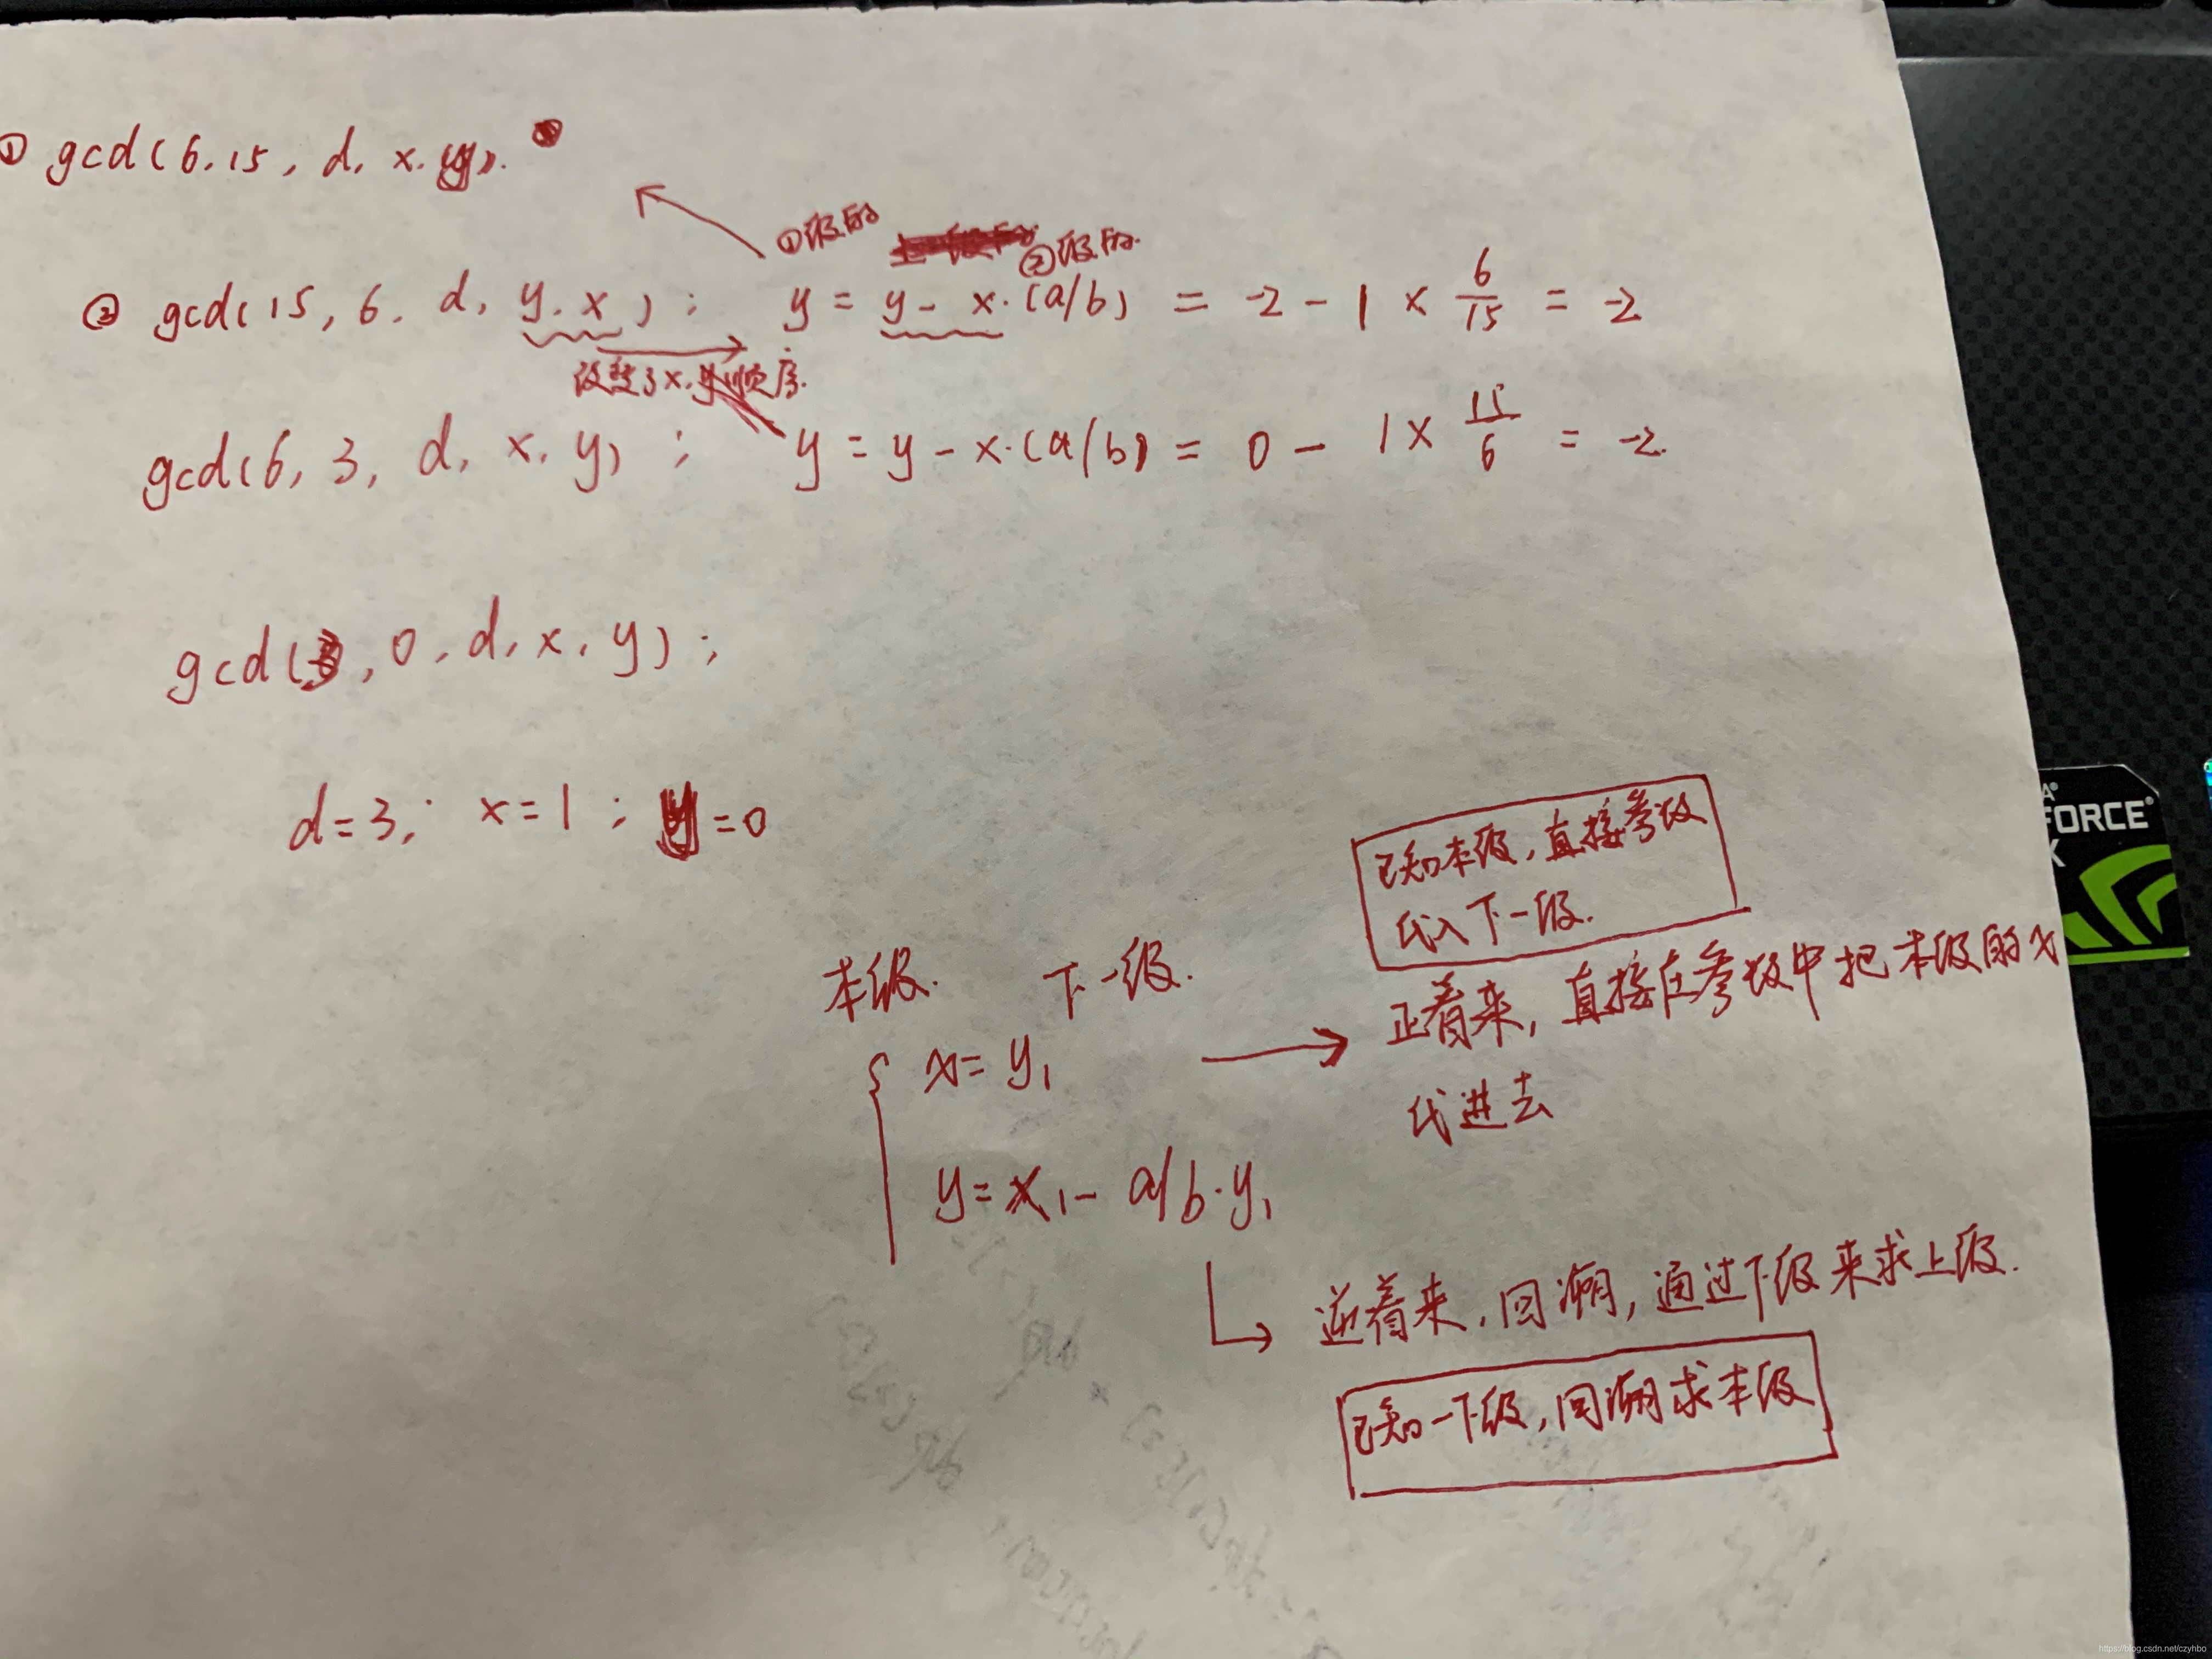 ① gcd(6,15, d, x, y).
①级的 ②级的.
② gcd(15, 6, d, y, x); y = y - x·(a/b) = -2 - 1 × 6/15 = -2
没变了x,y顺序.
gcd(6, 3, d, x, y); y = y - x·(a/b) = 0 - 1 × 15/6 = -2.
gcd(3, 0, d, x, y);
d=3; x=1; y=0
已知本级,直接参数
代入下一级.
本级. 下一级.
正着来,直接在参数中把本级的x
代进去
x = y₁
y = x₁ - a/b·y₁
逆着来,回溯,通过下级来求上级.
已知一下级,回溯求本级
FORCE
X
https://blog.csdn.net/czyhbo